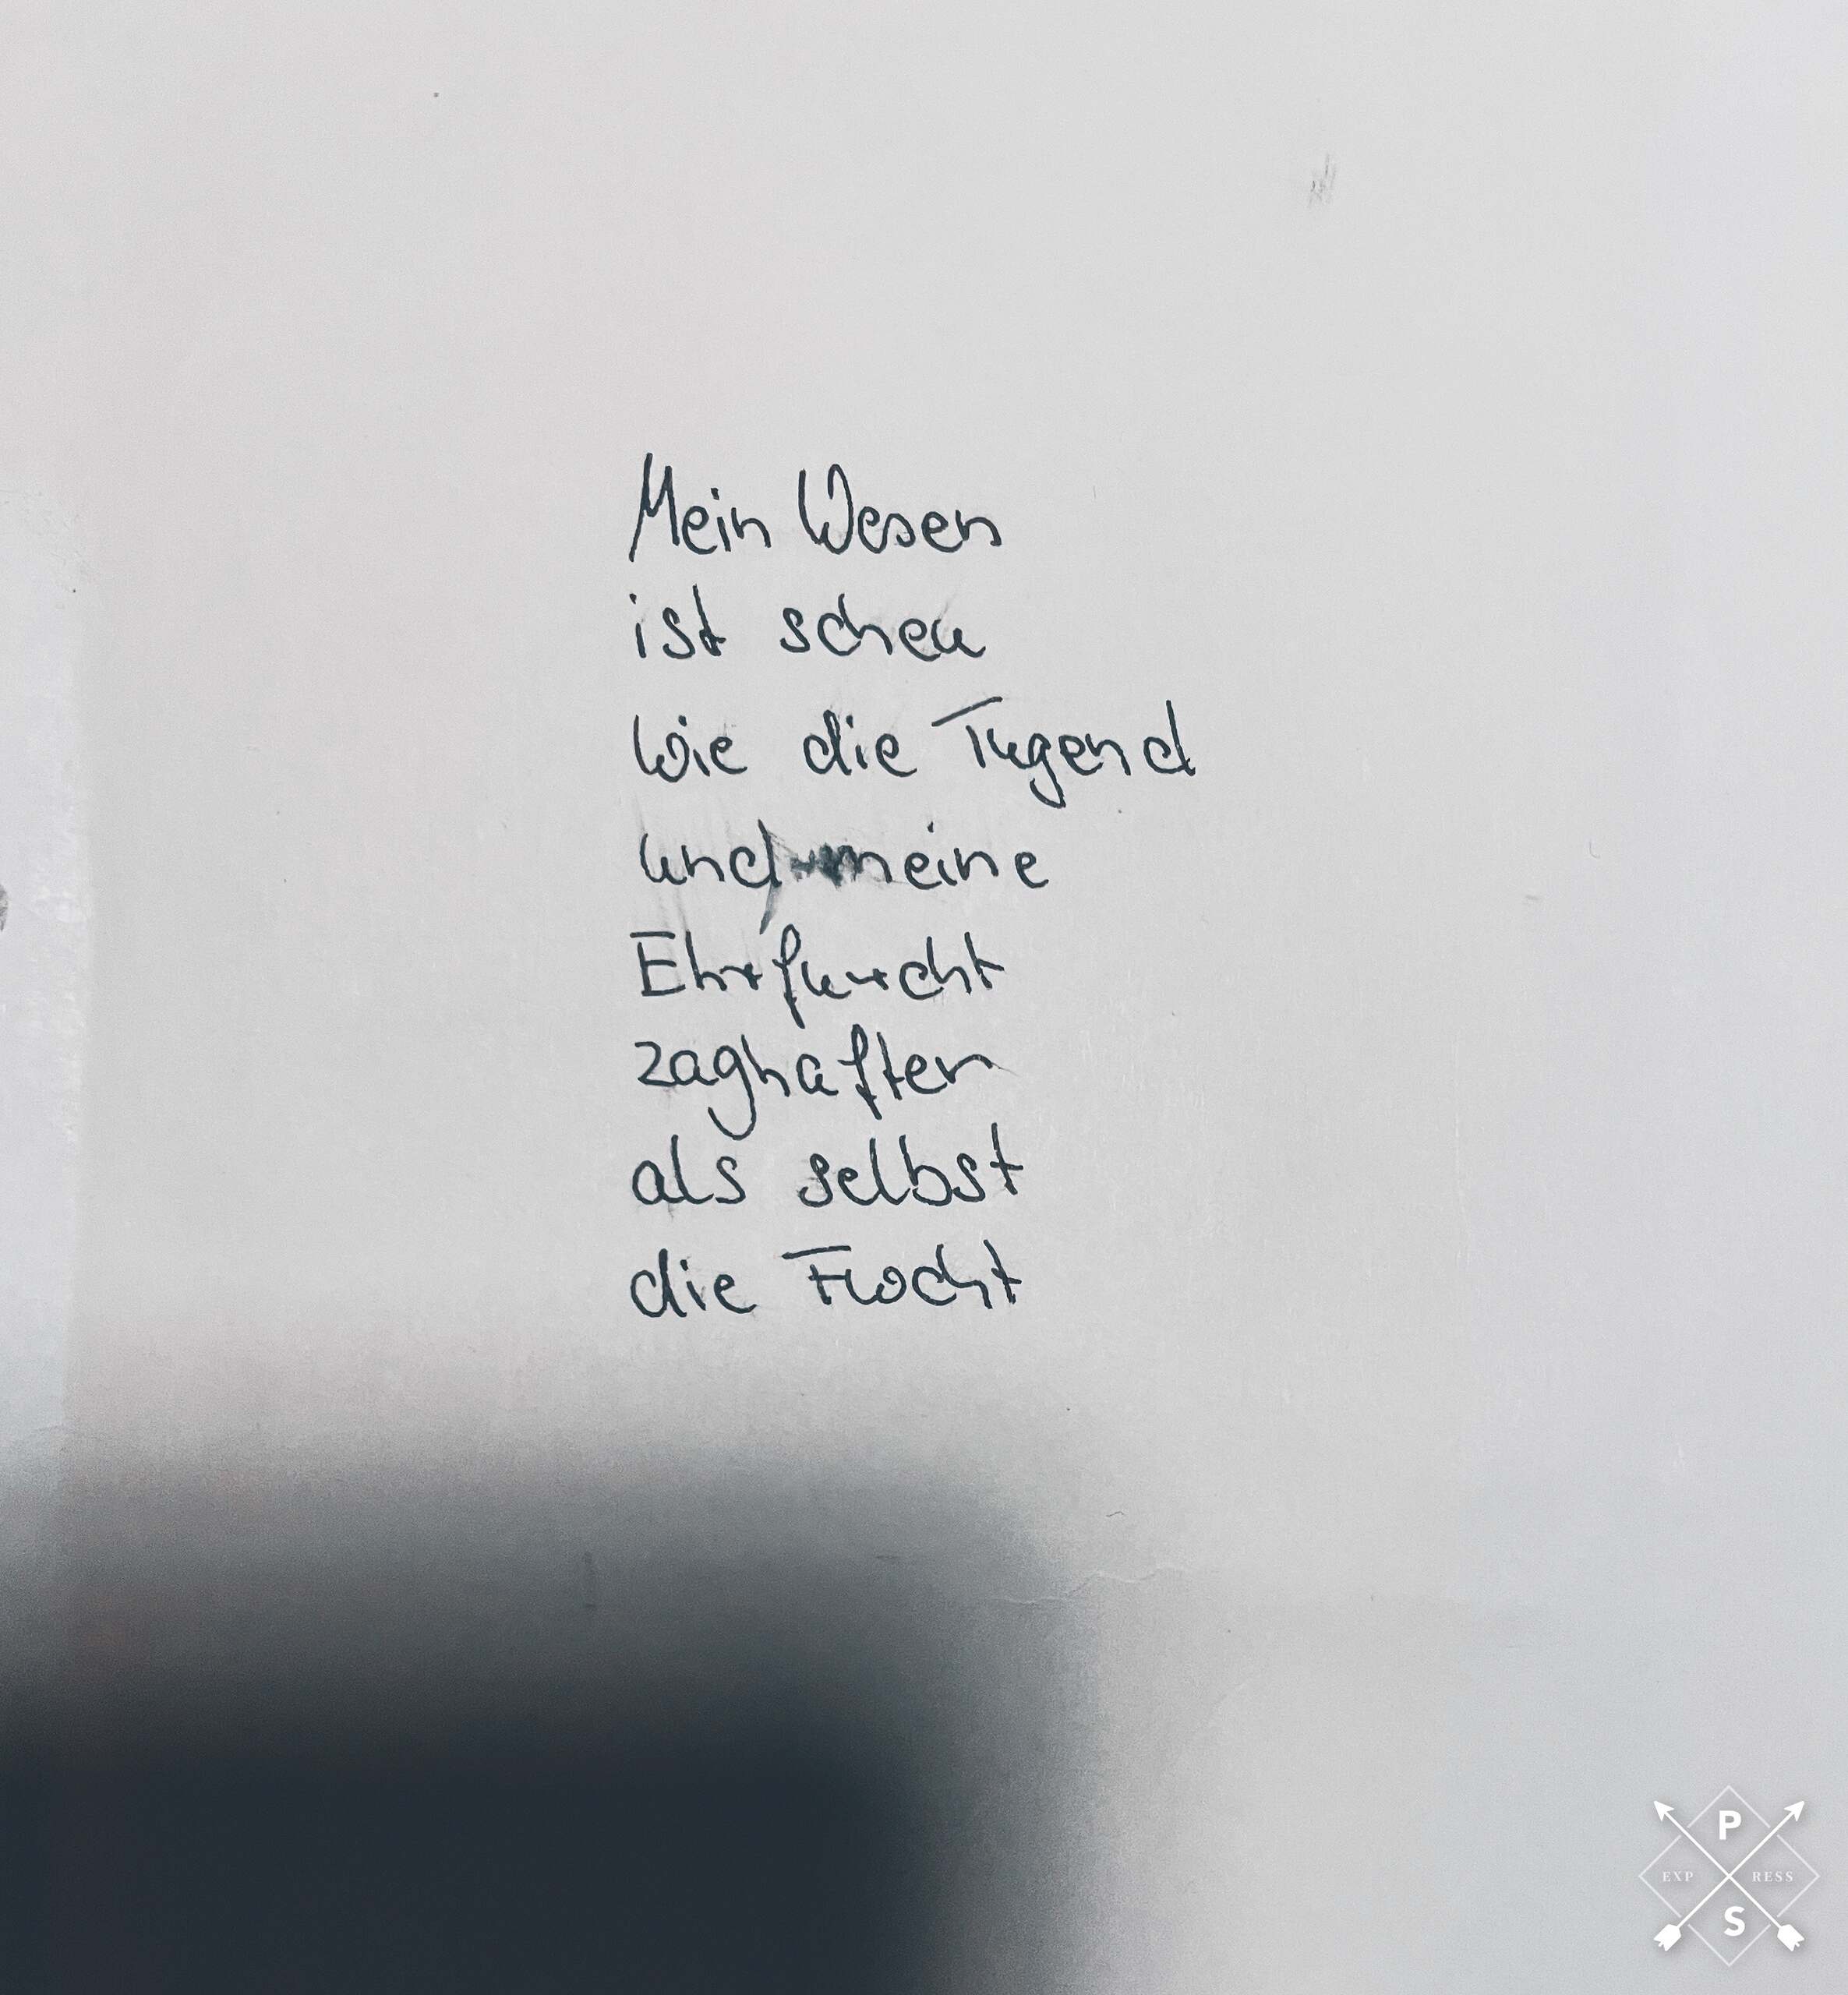 Mein Wesen
ist scheu
wie die Tugend
und meine
Ehrfurcht
zaghafter
als selbst
die
P
EXP RESS
S